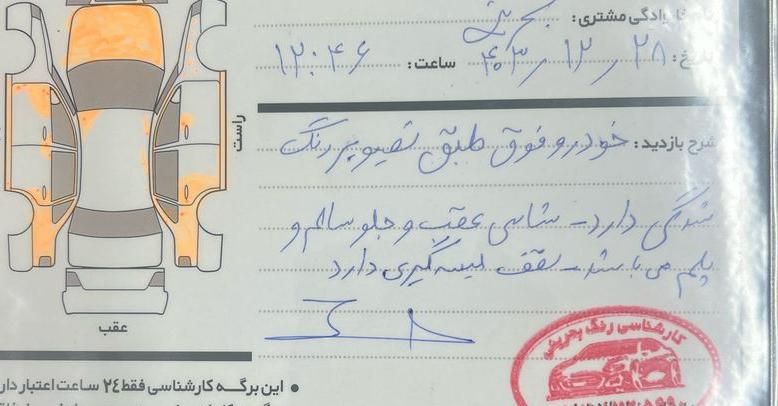 نام خانوادگی مشتری:
تاریخ: ۴۰۳/۱۲/۲۸ ساعت: ۱۲:۰۴۶
راست
شرح بازدید: خودرو فوق طبق تصویر رنگ
شدگی دارد - شاسی عقب و جلو سالم و
پلمپ می باشد - سقف لیسه گیری دارد
عقب
کارشناسی رنگ بحرینی
● این برگه کارشناسی فقط ۲۴ ساعت اعتبار دارد